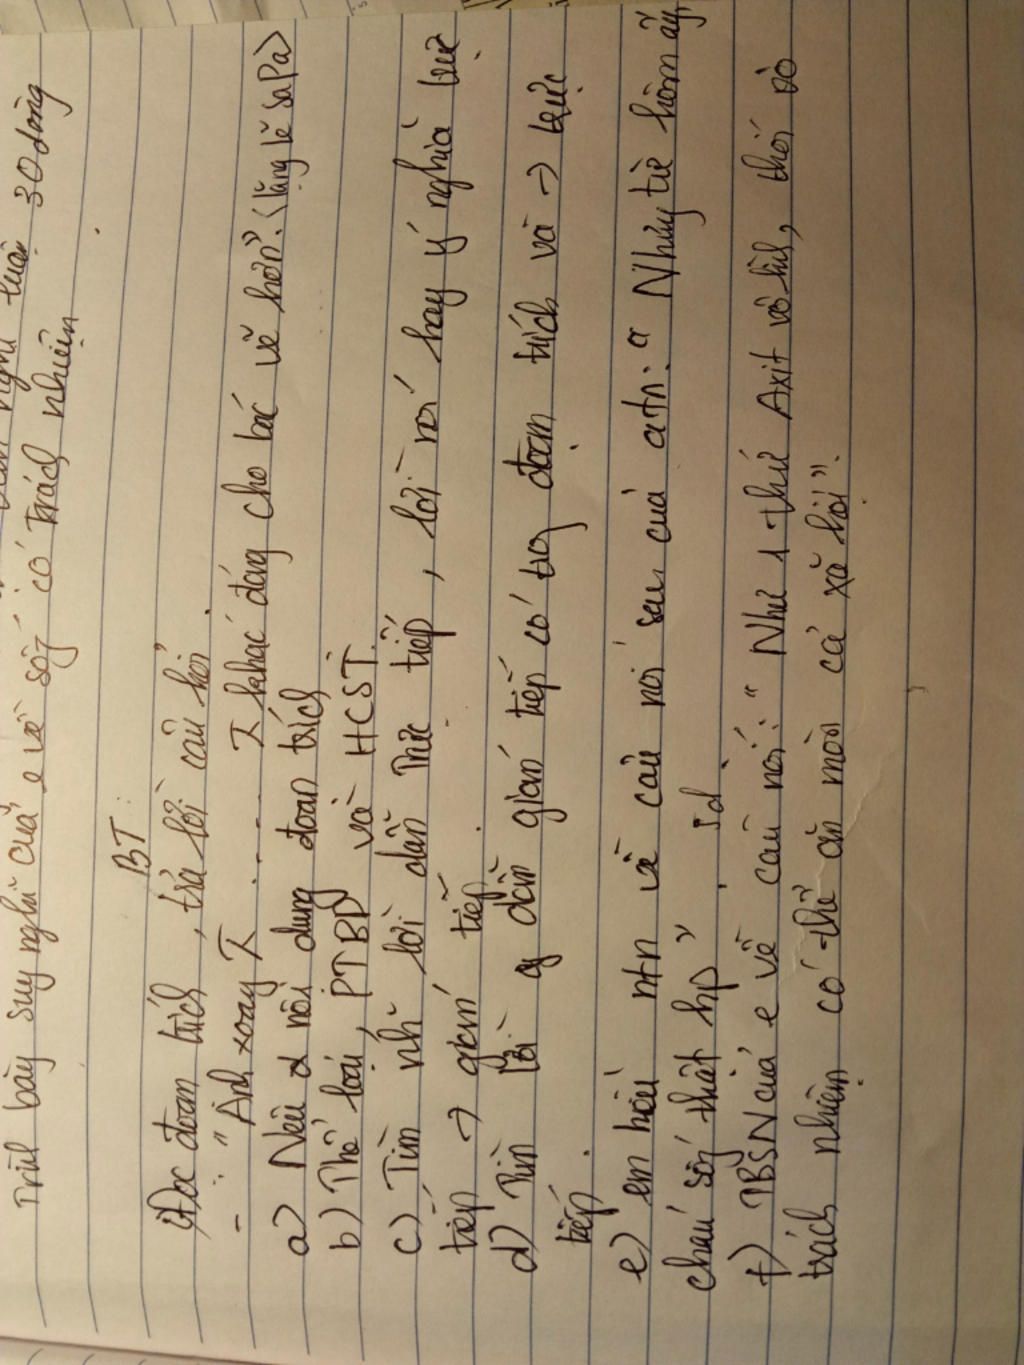 suy nghĩ 30 dòng
Trình bày suy nghĩ của e về sốg có trách nhiệm
BT:
Đọc đoạn trích, trả lời câu hỏi.
- : " Anh xoay ... khác đáng cho bác vẽ hơn". <lặng lẽ SaPa>
a) Nêu nội dung đoạn trích
b) Thể loại, PTBĐ và HCST.
c) Tìm nh~ lời dẫn trực tiếp, lời nói hay ý nghĩa trực
tiếp → gián tiếp.
d) Tìm lời dẫn gián tiếp có trg đoạn trích và → trực
tiếp.
e) em hiểu ntn về câu nói sau của atn: " Nhày từ hôm ấy,
cháu sốg thật hp"
f) TBSN của e về câu nói: " Như 1 thứ Axit vô hình, thói vô
trách nhiệm có thể ăn mòn cả xã hội".